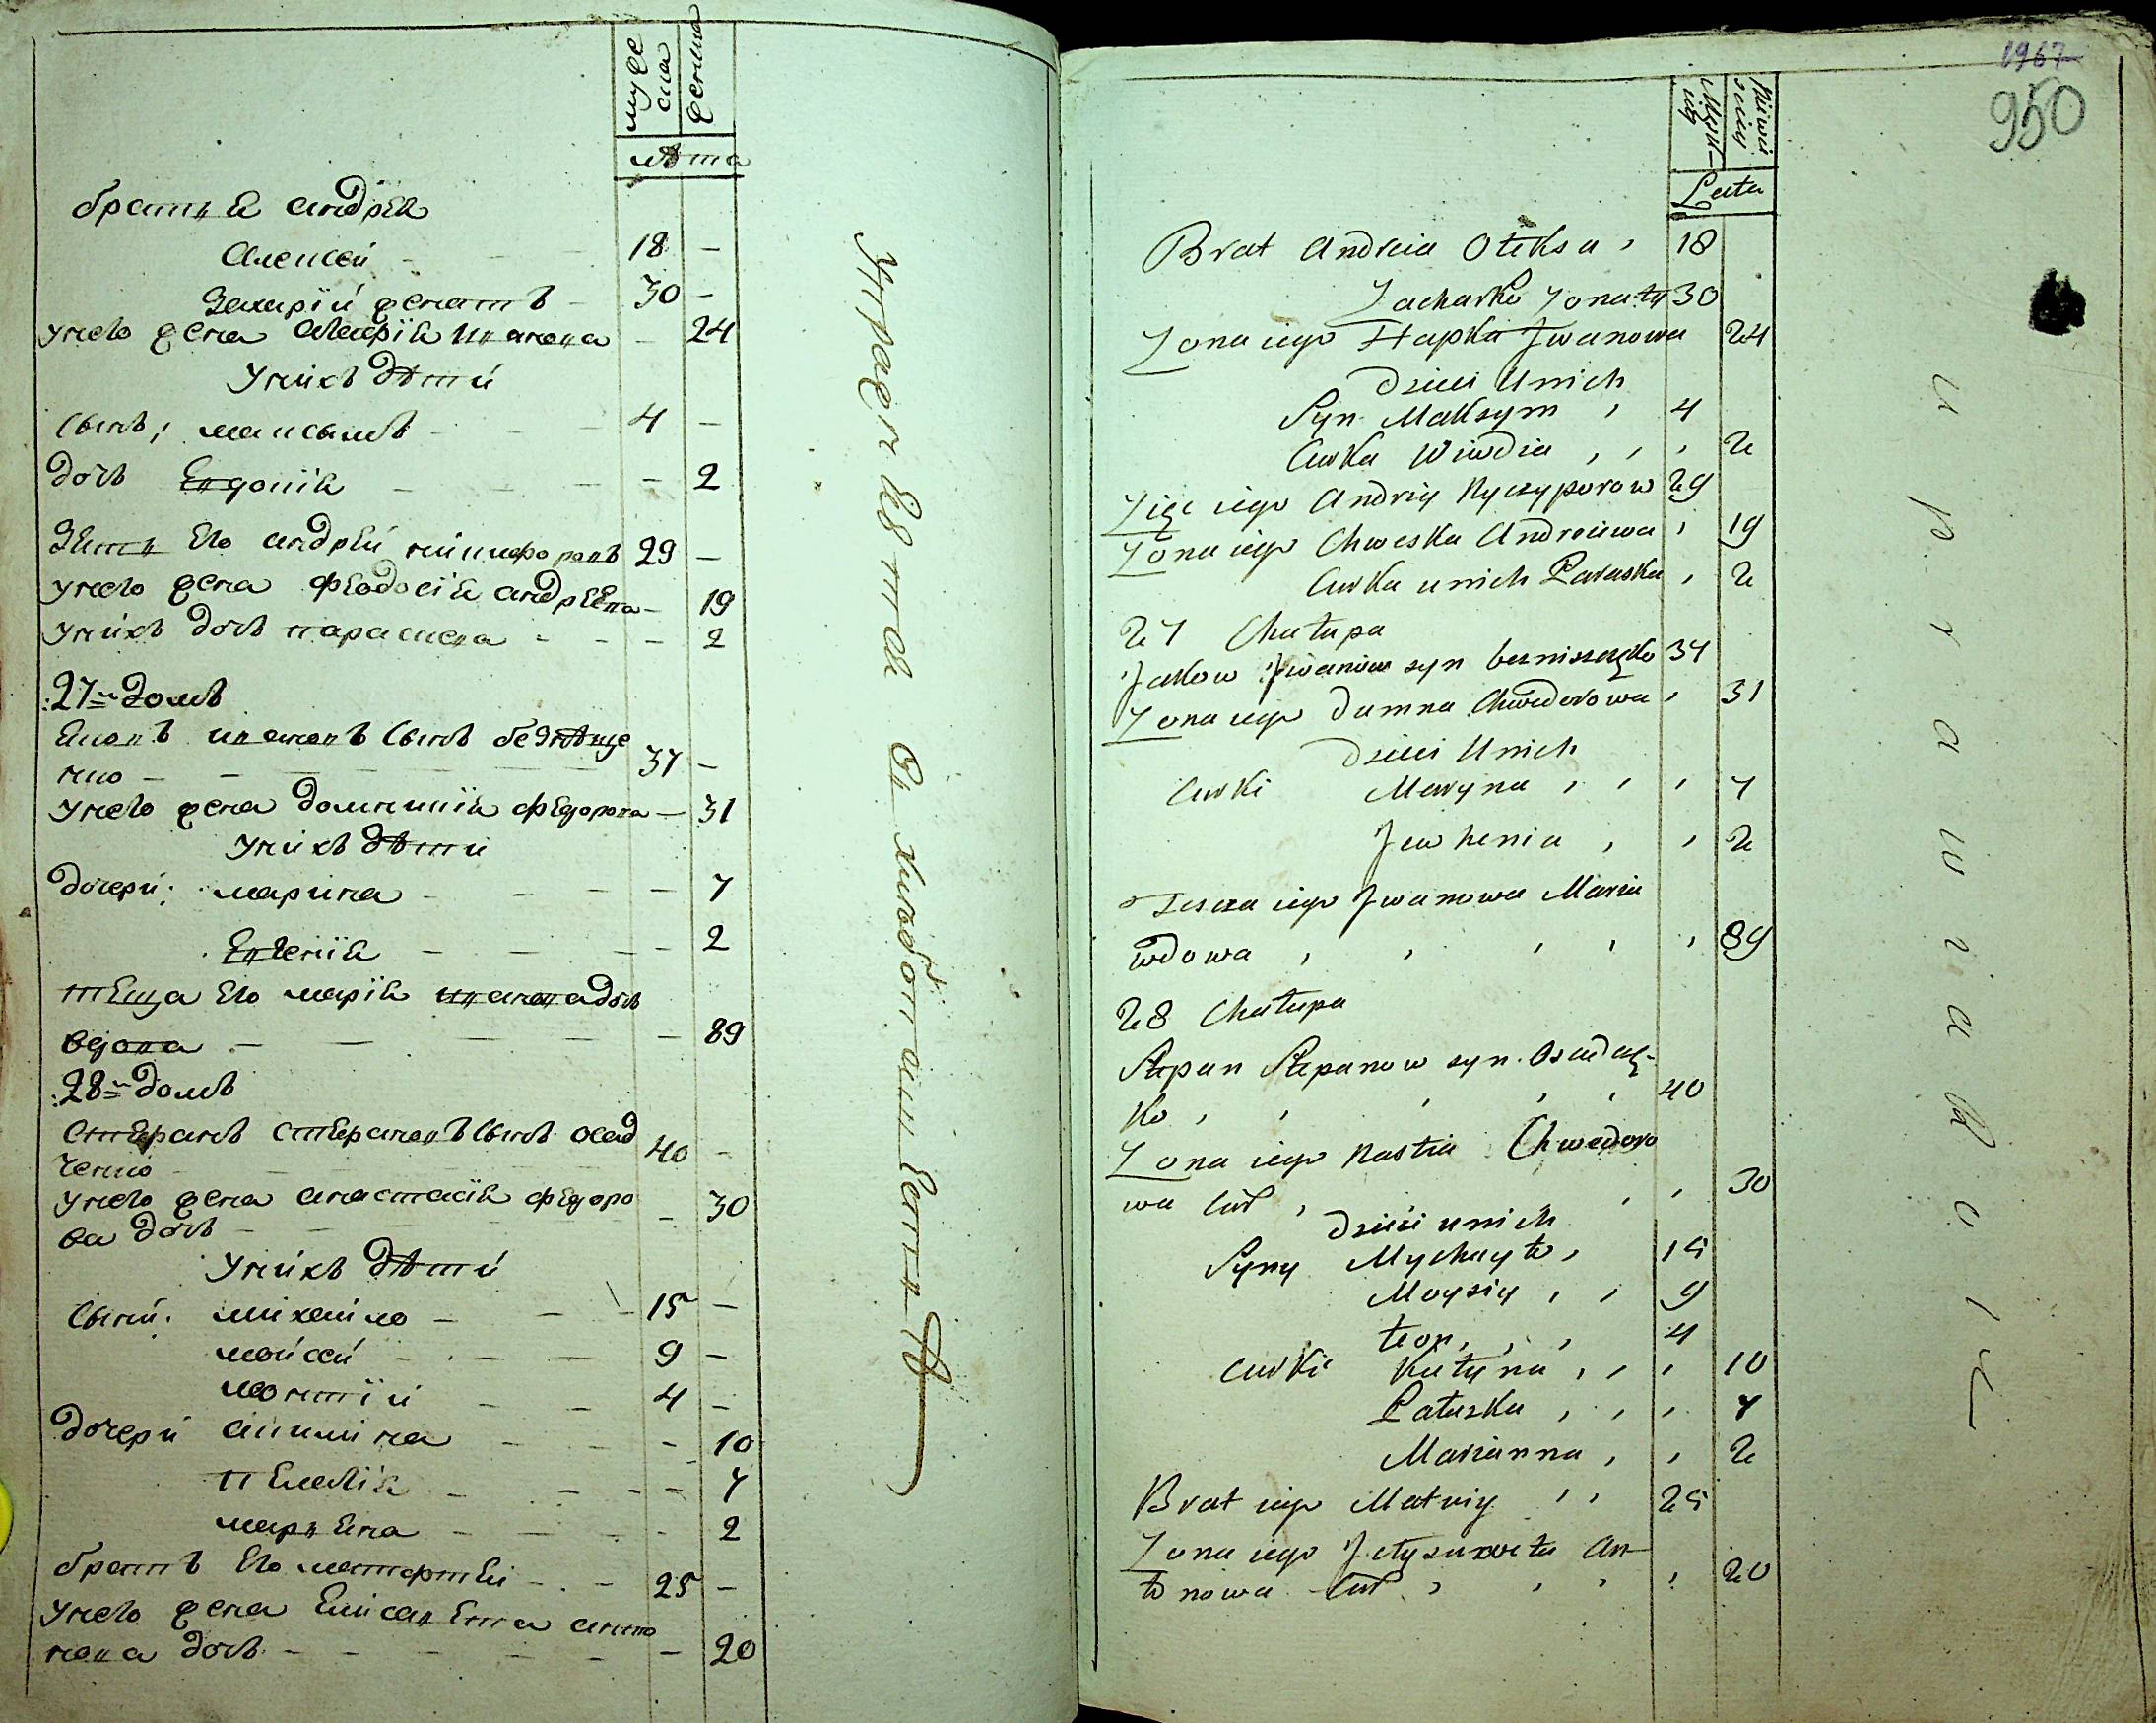 муже
ска
женска
лѣта
братъ ѣа андрѣя
Алексей - - - 18 -
Захарїй женатъ - 30 -
Унего жена Агафія ивановa - 24
Унихъ дѣти
Сынъ; максымъ - - - 4 -
дочь Евдокія - - - - 2
Зять его андрѣй никифоровъ 29 -
Унего жена Феодосія андрѣева - 19
Унихъ дочь параскева - - - 2
:27й домъ
Яковъ ивановъ сынъ безнѣще
нко - - - 37 -
Унего жена домникія Федорова - 31
Унихъ дѣти
дочери: марина - - - - 7
Евгенія - - - - 2
теща его марія иванова дочь
вдова - - - - 89
:28й домъ
Степанъ степановъ сынъ осад
ченко - - - 40 -
Унего жена анастасія федоро
ва дочь - - - - 30
Унихъ дѣти
Сыни: михайло - - - 15 -
мойсей - - - 9 -
леонтїй - - 4 -
дочери акилина - - - 10
пелагія - - - - 7
маріяна - - - - 2
братъ его матфѣй - - 25 -
Унего жена Елисавета анто
нова дочь - - - - 20
1967
950
Męsk-
iey
Niewie
sciey
Lata
Brat Andreia Ołeksa , 18
Zacharko Żonaty 30
Żona iego Hapka Jwanowa 24
Dzieci Unich
Syn Maksym , 4
Curka Wiwdia , , , 2
Zięc iego Andriy Nyczyporow 29
Żona iego Chweska Andreiewa , 19
Curka unich Paraska , 2
27 Chałupa
Jakow Jwanow syn bezniszczęko 37
Żona iego Dumna Chwedorowa , 31
Dzieci Unich
Curki Maryna , , , 7
Jewhenia , , 2
Teszcza iego Jwanowa Maria
wdowa , , , , , 89
28 Chałupa
Stepan Stepanow syn Osadczę-
ko , , , , , 40
Żona iego Nastia Chwedoro
wa Cur , , , 30
Dzieci unich
Syny Mychayło , 15
Moysiy , , 9
Leon , , , 4
Curki Kułyna , , , 10
Pałaszka , , , 7
Marianna , , 2
Brat iego Matwiy , , 25
Żona iego Jełyzaweta An-
tonowa Cur , , , , 20